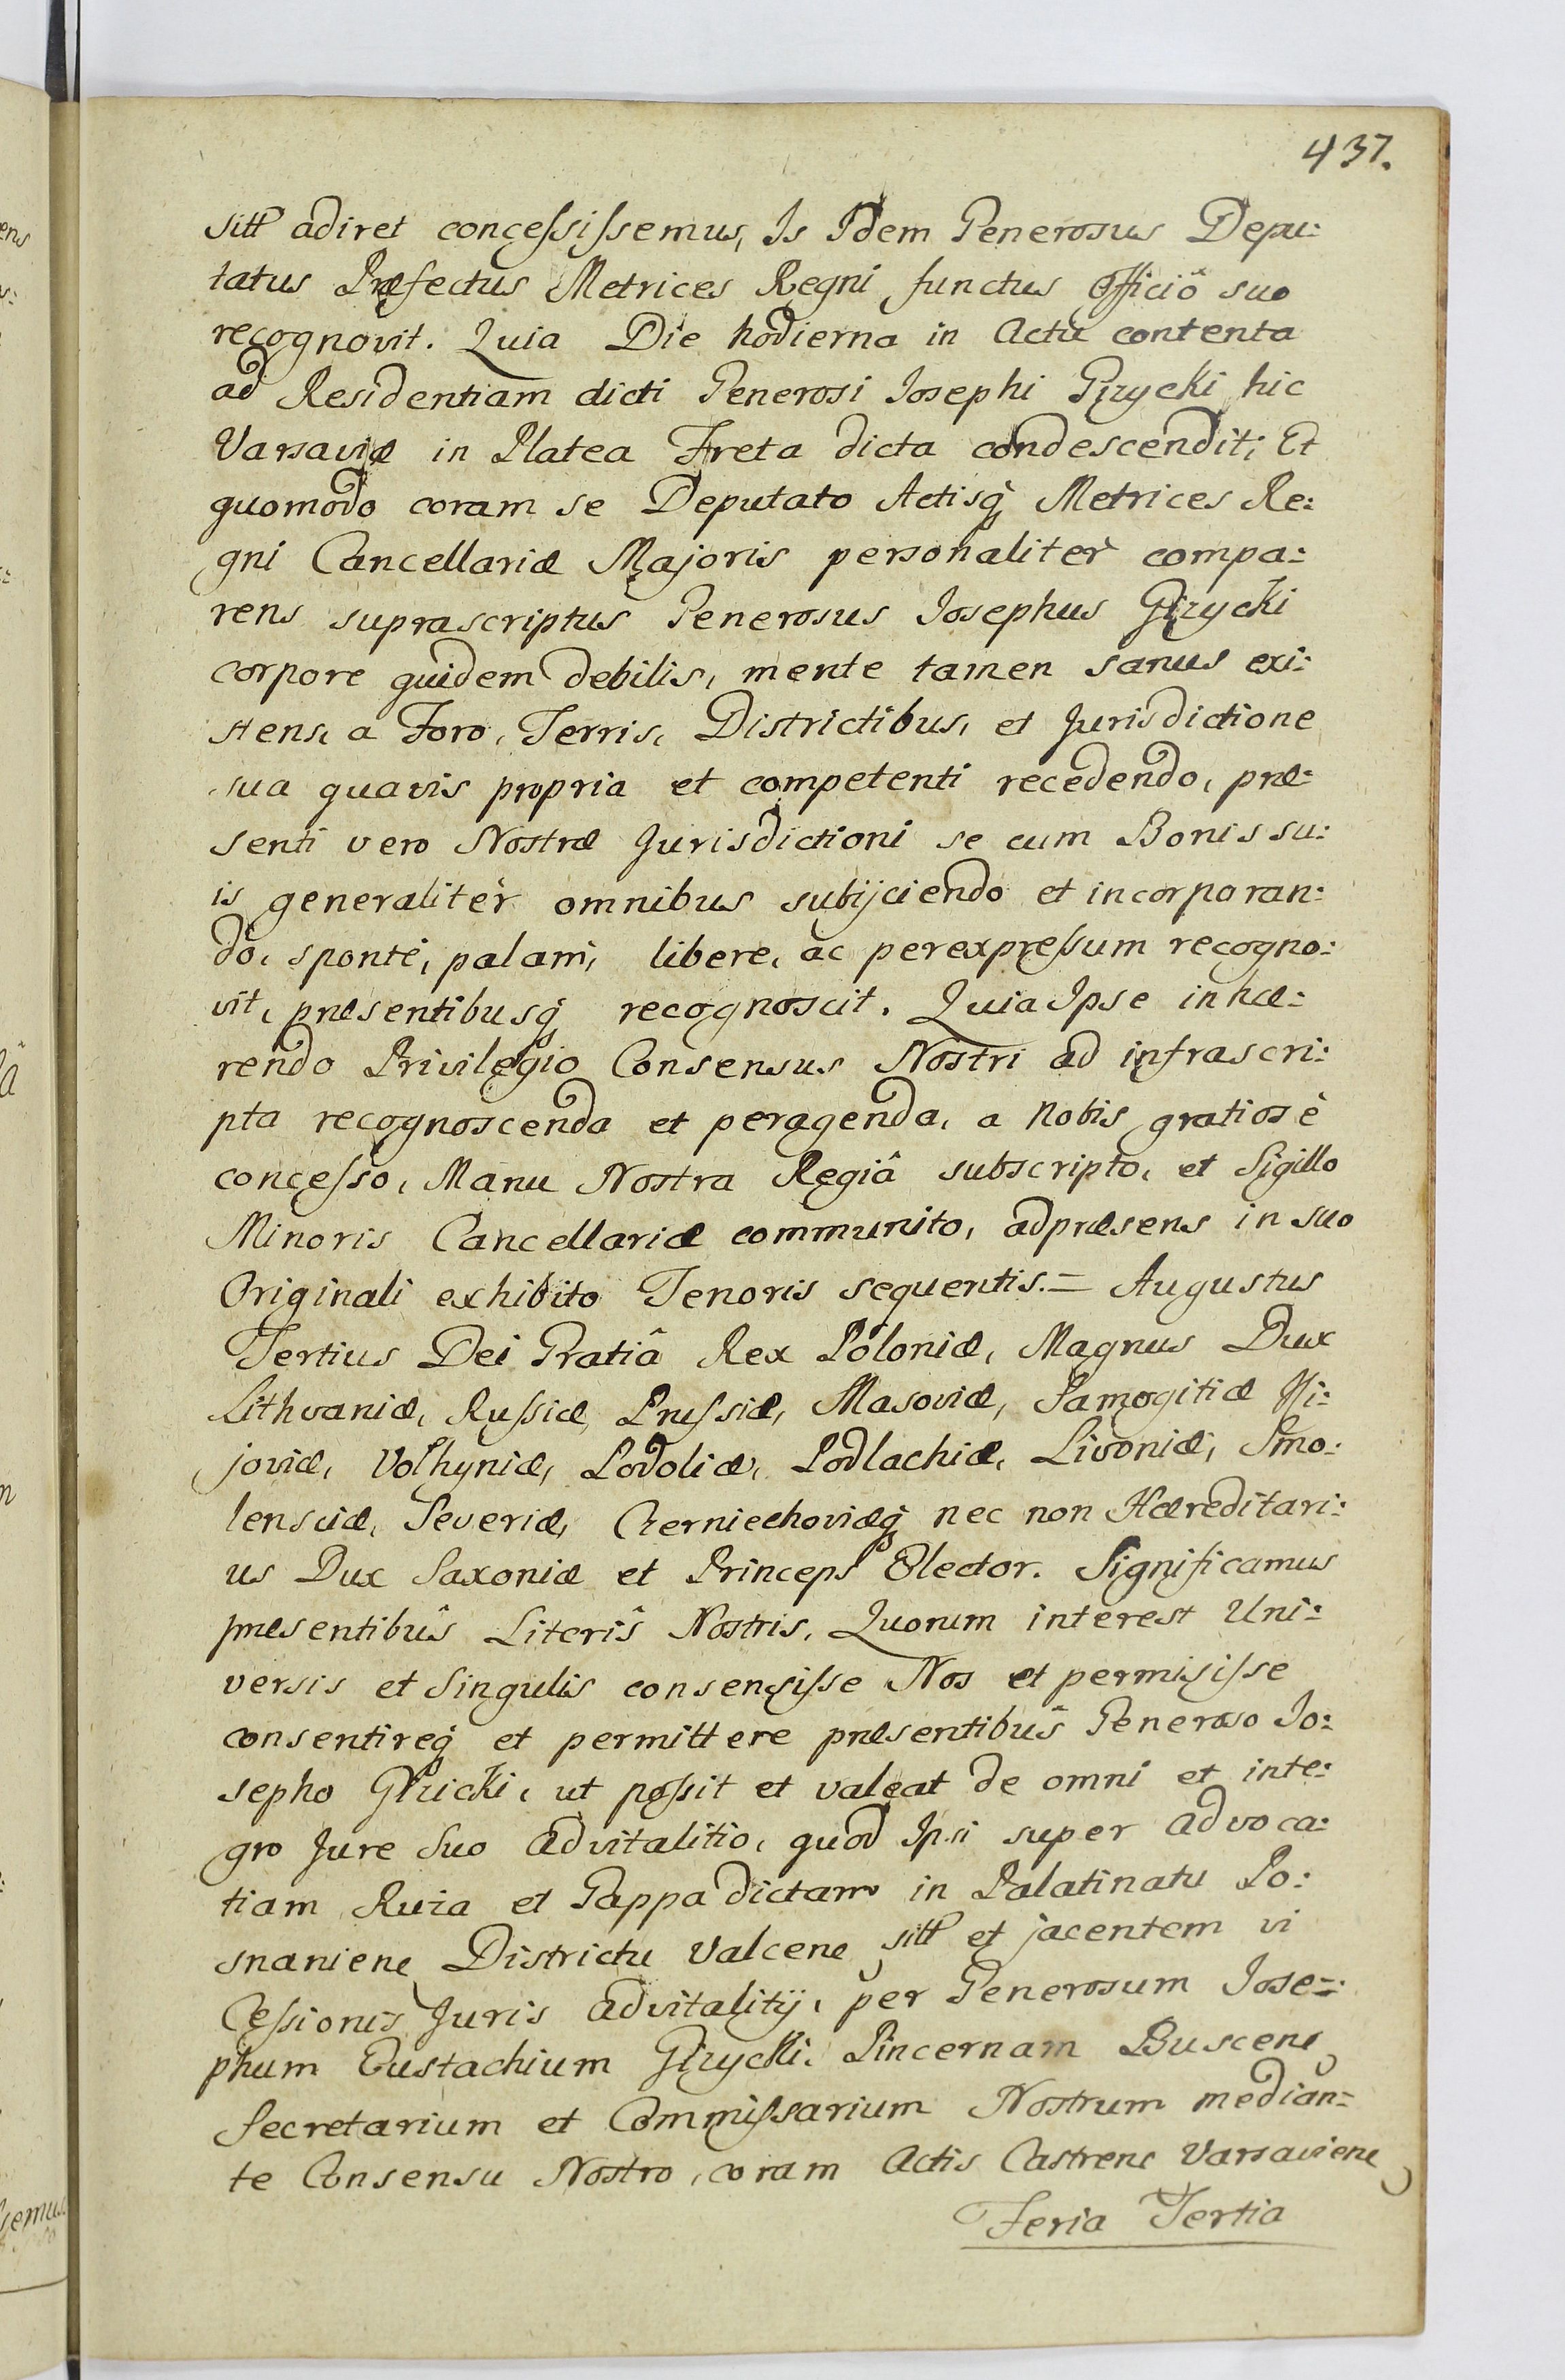 437.
sitt adiret concessissemus, Is Idem Generosus Depu:
tatus Præfectus Metrices Regni functus Officiô suo
recognovit. Quia Die hodierna in Actu contenta
ad Residentiam dicti Generosi Josephi Głzycki hic
Varsaviæ in Platea Freta dicta condescendit; Et
quomodo coram se Deputato Actisq Metrices Re:
gni Cancellariæ Majoris personaliter compa:
rens suprascriptus Generosus Josephus Głzycki
corpore quidem debilis, mente tamen sanus exi:
stens, a Foro, Terris, Districtibus, et Jurisdictione
sua quavis propria et competenti recedendo, præ:
senti vero Nostræ Jurisdictioni se cum Bonis su:
is generalitèr omnibus subijciendo et incorporan:
do, sponte, palam, libere, ac perexpressum recogno:
vit, præsentibusq recognoscit. Quia Ipse inhæ:
rendo Privilegio Consensus Nostri ad infrascri:
pta recognoscenda et peragenda, a Nobis gratiosè
concesso, Manu Nostra Regiâ subscripto, et Sigillo
Minoris Cancellariæ communito, adpræsens in suo
Originali exhibito Tenoris sequentis.= Augustus
Tertius Dei Gratiâ Rex Poloniæ, Magnus Dux
Lithvaniæ, Russiæ, Prussiæ, Masoviæ, Samogitiæ Ki:
joviæ, Volhyniæ, Podoliæ, Podlachiæ, Livoniæ, Smo:
lensciæ, Severiæ, Czerniechoviæq nec non Hæreditari:
us Dux Saxoniæ et Princeps Elector. Significamus
præsentibûs Literîs Nostris, Quorum interest Uni:
versis et Singulis consensisse Nos et permisisse
consentireq et permittere præsentibûs Generoso Jo:
sepho Głzicki, ut possit et valeat de omni et inte:
gro Jure Suo Advitalitio, quod Ipsi super Advoca:
tiam Ruza et Gappa dictam in Palatinatu Po:
snaniene Districtu Valcene sitt et jacentem vi
Cessionis Juris Advitalitij, per Generosum Jose=:
phum Eustachium Głzycki, Pincernam Buscene
Secretarium et Commissarium Nostrum median=
te Consensu Nostro, coram Actis Castrene Varsaviene
Feria Tertia